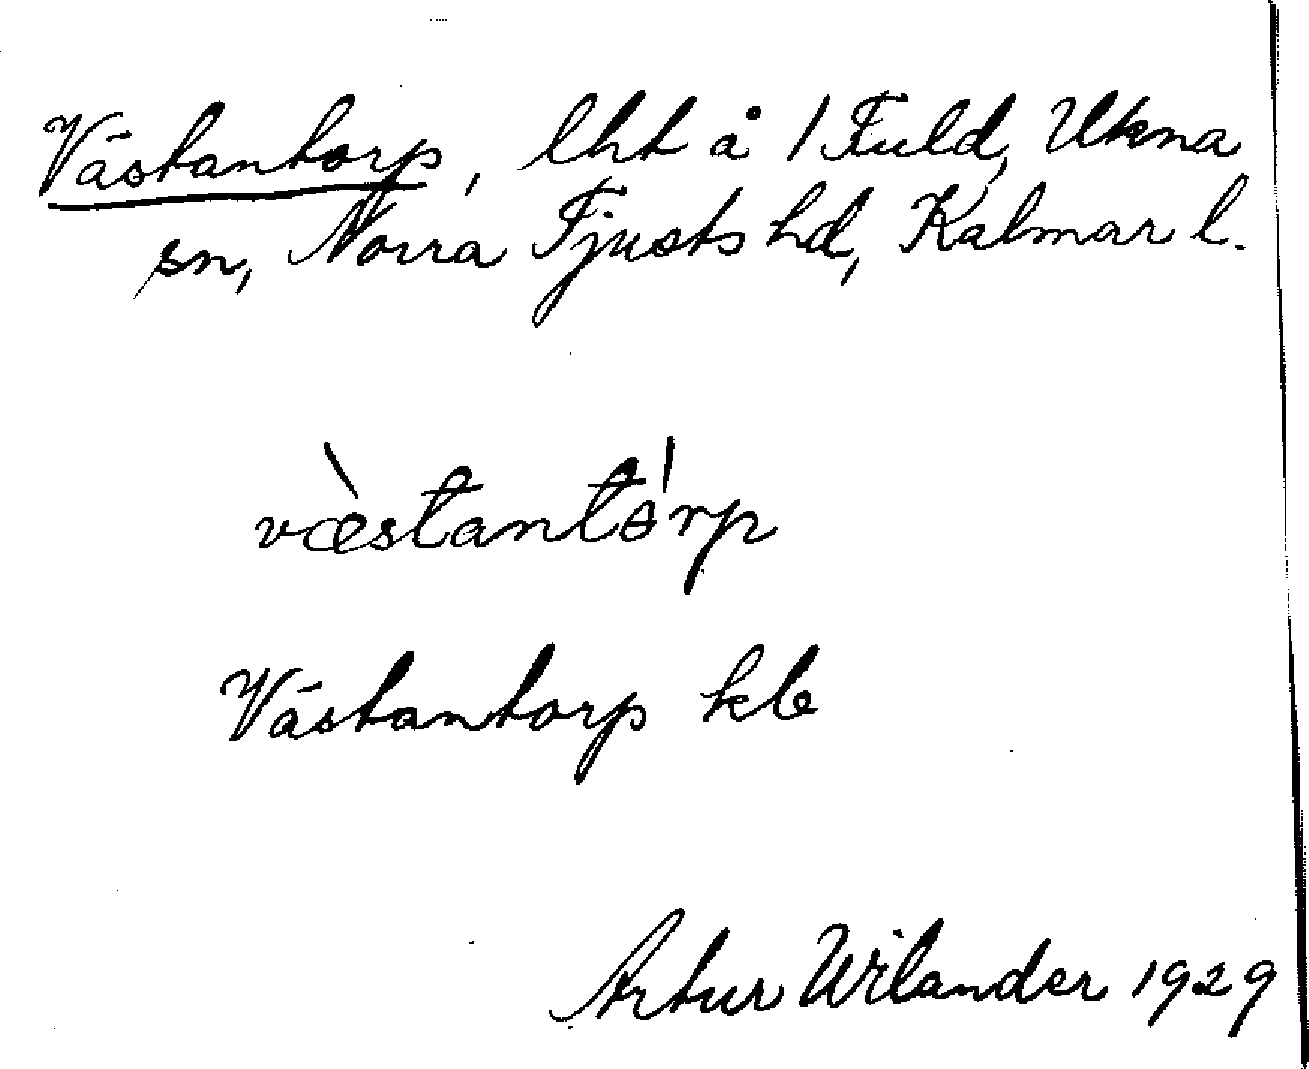 Västantorp, lht å 1 Fuld, Ukna
sn, Norra Tjusts hd, Kalmar l.
væ̀stantɵ́rp
Västantorp kb
Artur Wilander 1929